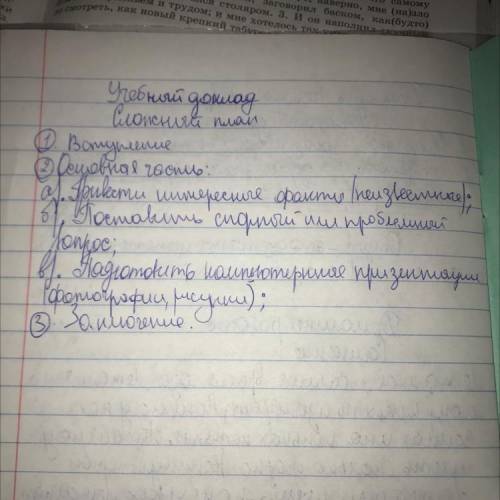 заговорил баском, как(будто)
смотреть, как новый крепкий
Учебный доклад
Сложный план
① Вступление
② Основная часть:
а). Привести интересные факты (неизвестные);
б). Поставить спорный или проблемный
вопрос;
в). Подготовить компьютерные призентации
(фотографии, рисунки);
③ Заключение.